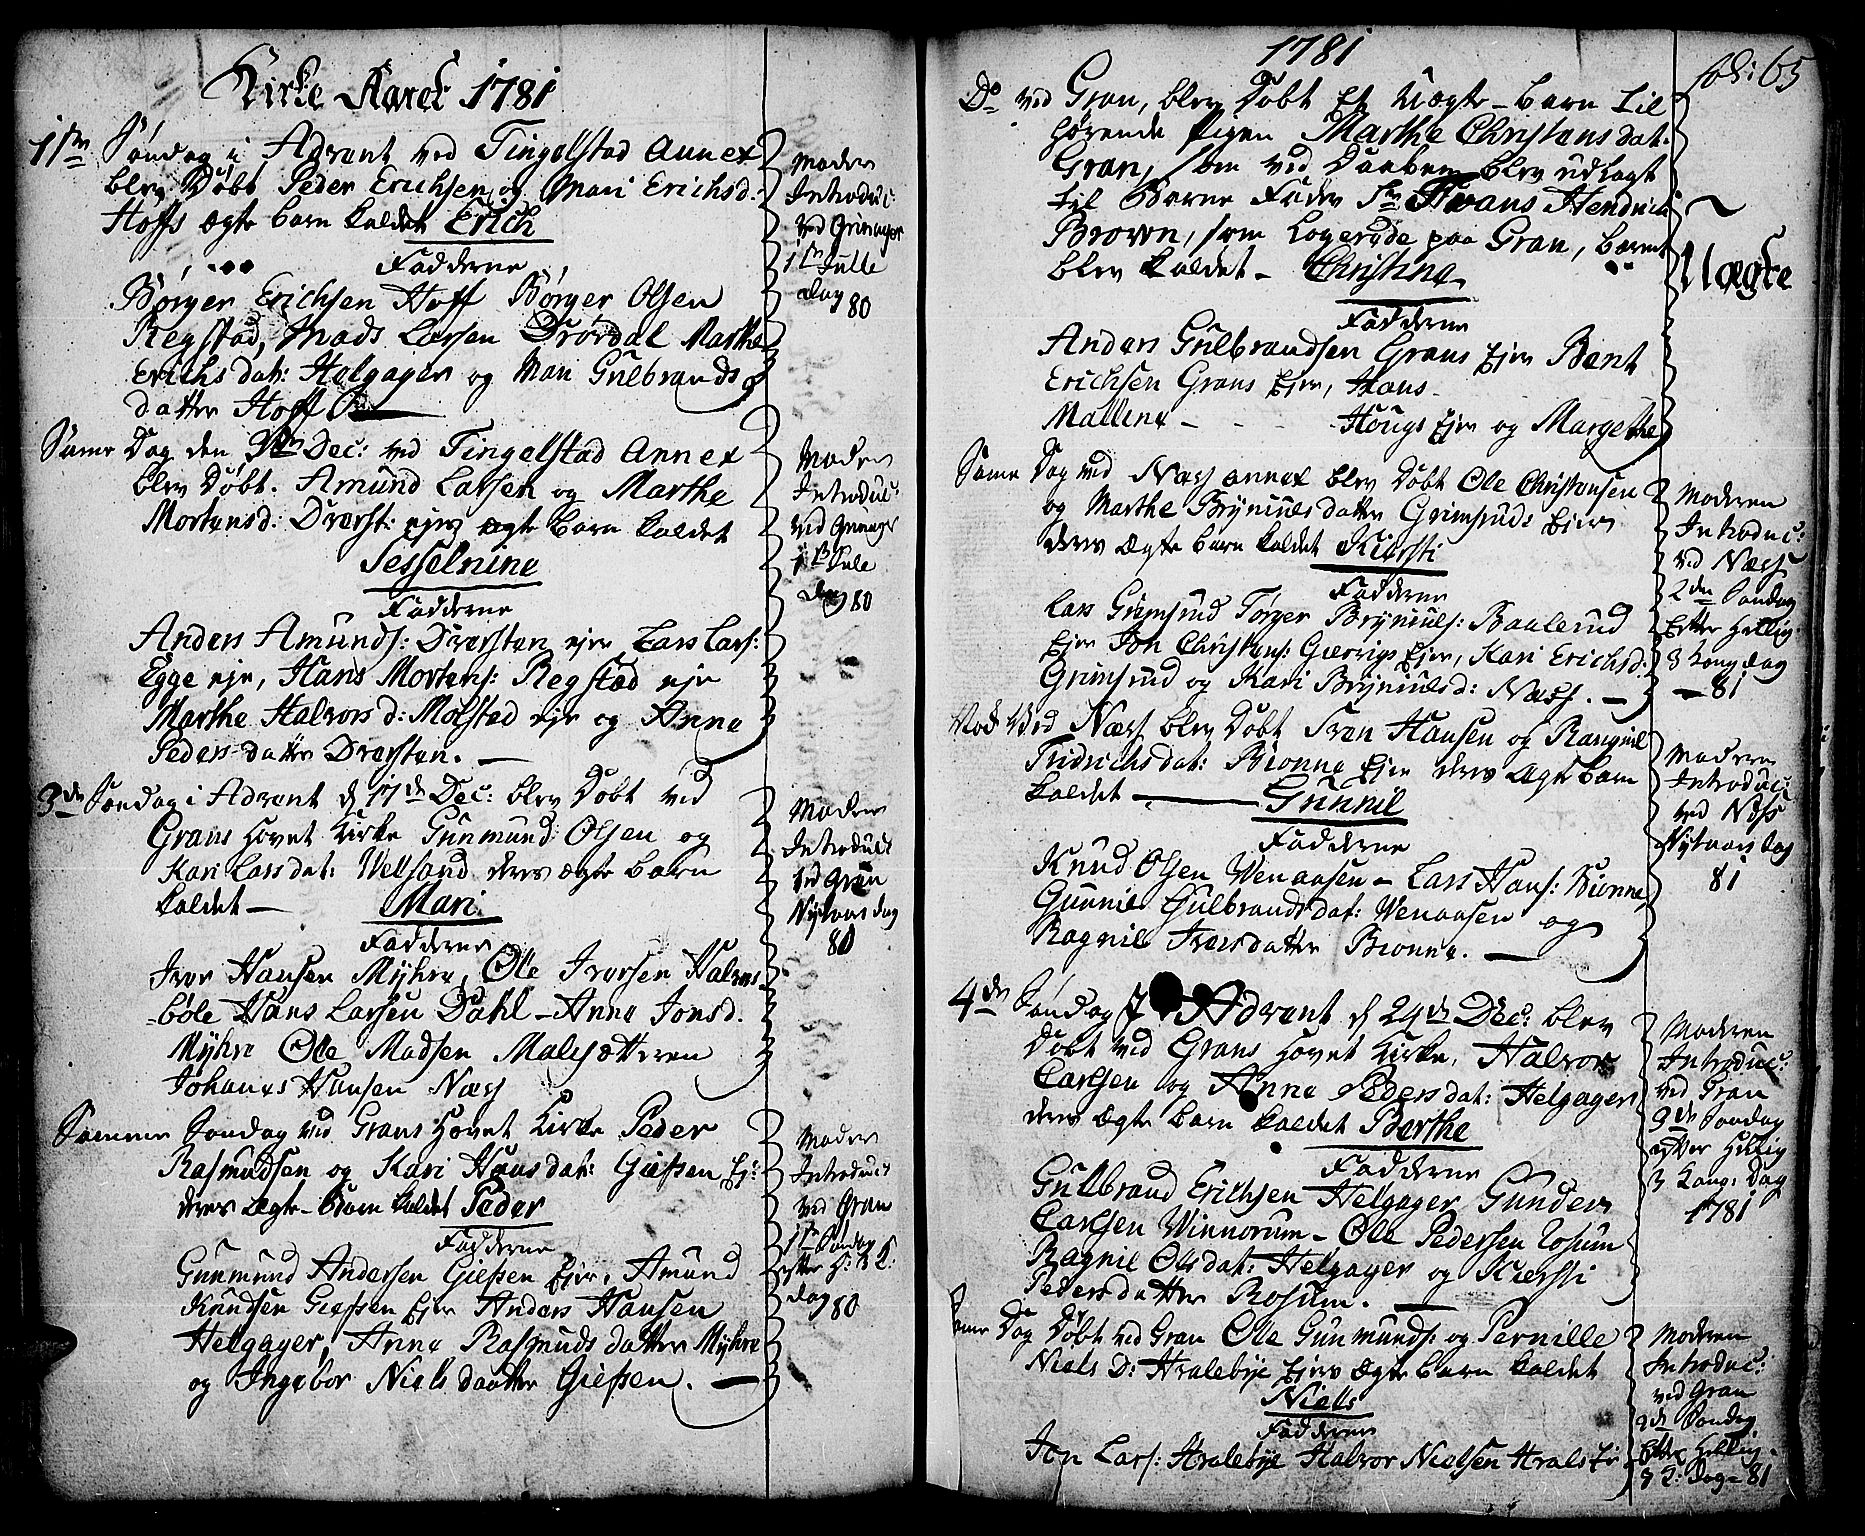 Kirke Aaret 1781
1ste Søndag i Advent ved Tingelstad Annex
blev Døbt Peder Erichsen og Mari Erichsd:
Hoffs ægte barn kaldet Erich
Fadderne
Børger Erichsen Hoff Børger Olsen
Regstad, Mads Larsen Drørdal Marthe
Erichsdat: Helgager og Mari Gulbrands
datter Hoff
Moderen
Introduc:
ved Grinager
1ste Julle
dag 80
Same Dag den 3die Dec: ved Tingelstad Annex
blev Døbt. Amund Larsen og Marthe
Mortensd: Dværst: ejes ægte barn kaldet
Sesselnine
Fadderne
Anders Amunds: Dværsten ejer, Lars Lars:
Egge eje, Hans Mortens: Regstad eje
Marthe Halvorsd: Molstad eje og Anne
Pedersdatter Dværsten.
Moderen
Introduc:
ved Grinager
1ste Jule
dag 80
3die Søndag i Advent d 17de Dec: blev Døbt ved
Grans Hovet Kirke Gunmund Olsen og
Kari Larsdat: Velsand deres ægte barn
kaldet — Mari
Fadderne
Iver Hansen Myhre, Ole Iversen Halvors-
-bøle Hans Larsen Dahl - Anne Jonsd.
Myhre Ole Madsen Malesætteren
Johanes Hansen Næss
Moderen
Introduct
ved Gran
Nytaarsdag
80
Samme Søndag ved Grans Hovet Kirke Peder
Rasmudsen og Kari Hansdat: Giefsen Ej:
deres Ægte-Barn kaldet Peder
Fadderne
Gunmund Andersen Giefsen Ejer, Amund
Knudsen Giefsen Ejer Anders Hansen
Helgager, Anne Rasmudsdatter Myhre
og Ingebor Nielsdaatter Giefsen.
Moderen
Introduct
ved Gran
1ste Søndag
efter H: 3 K:
dag 80
1781
fol: 65
Do ved Gran, blev Døbt Et Uægte-barn til
hørende pigen Marthe Christensdat:
Gran, som ved Daaben blev udlagt
til Barne Fader Sr Frans Hendrich
Brown, som Logerede paa Gran, barnet
blev kaldet - Christine
Uægte
Fadderne
Anders Gulbrandsen Grans Ejer Bent
Erichsen Grans Ejer, Hans
Malline - - - Hougs Ejer og Margethe
Same Dag ved Næss annex blev Døbt Ole Christensen
og Marthe Bryniuls datter Grimsruds Ejers
deres ægte barn kaldet Kiersti
Fadderne
Lars Grimsrud Torger Bryniuls: Baalerud
Ejer Jon Christens: Gierrigs Ejer, Kari Erichsd:
Grimsrud og Kari Bryniulsd: Næss.
Moderen
Introduc:
ved Næss
2den Søndag
Efter Hellig
3 Kong dag
— 81
Nock ved Næss blev Døbt Sven Hansen og Rangnil
Fridrichsdat: Bionne Ejer deres Ægte barn
kaldet — Gunnil
Fadderne
Knud Olsen Wenaasen - Lars Hans: Bionne,
Gunnil Gulbrandsdat: Wenaasen og
Ragnil Iversdatter Bionne.
Moderen
Introduc:
ved Næss
Nytaarsdag
81
4de Søndag i Advent d 24de Dec: blev
Døbt ved Grans Hovet Kirke, Halvor
Carlsen og Anne Pedersdat: Helgagers
deres Ægte barn kaldet Berthe
Fadderne
Gulbrand Erichsen Helgager Gunder
Carlsen Winnorum - Ole Pedersen Rosum
Ragnil Olsdat: Helgager og Kiersti
Pedersdatter Rosum.
Moderen
Introduc:
ved Gran
2de Søndag
efter Hellig
3 Kong: Dag
1781
Same Dag Døbt ved Gran Ole Gunmunds: og Pernille
Niels D: Hvalebye Ejers Ægte barn kaldet
Niels
Fadderne
Jon Lars: Hvalebye Halvor Nielsen Hvals Ej
Moderen
Introduc:
ved Gran
2de Søndag
Efter Hellig
3 K: Dag - 81